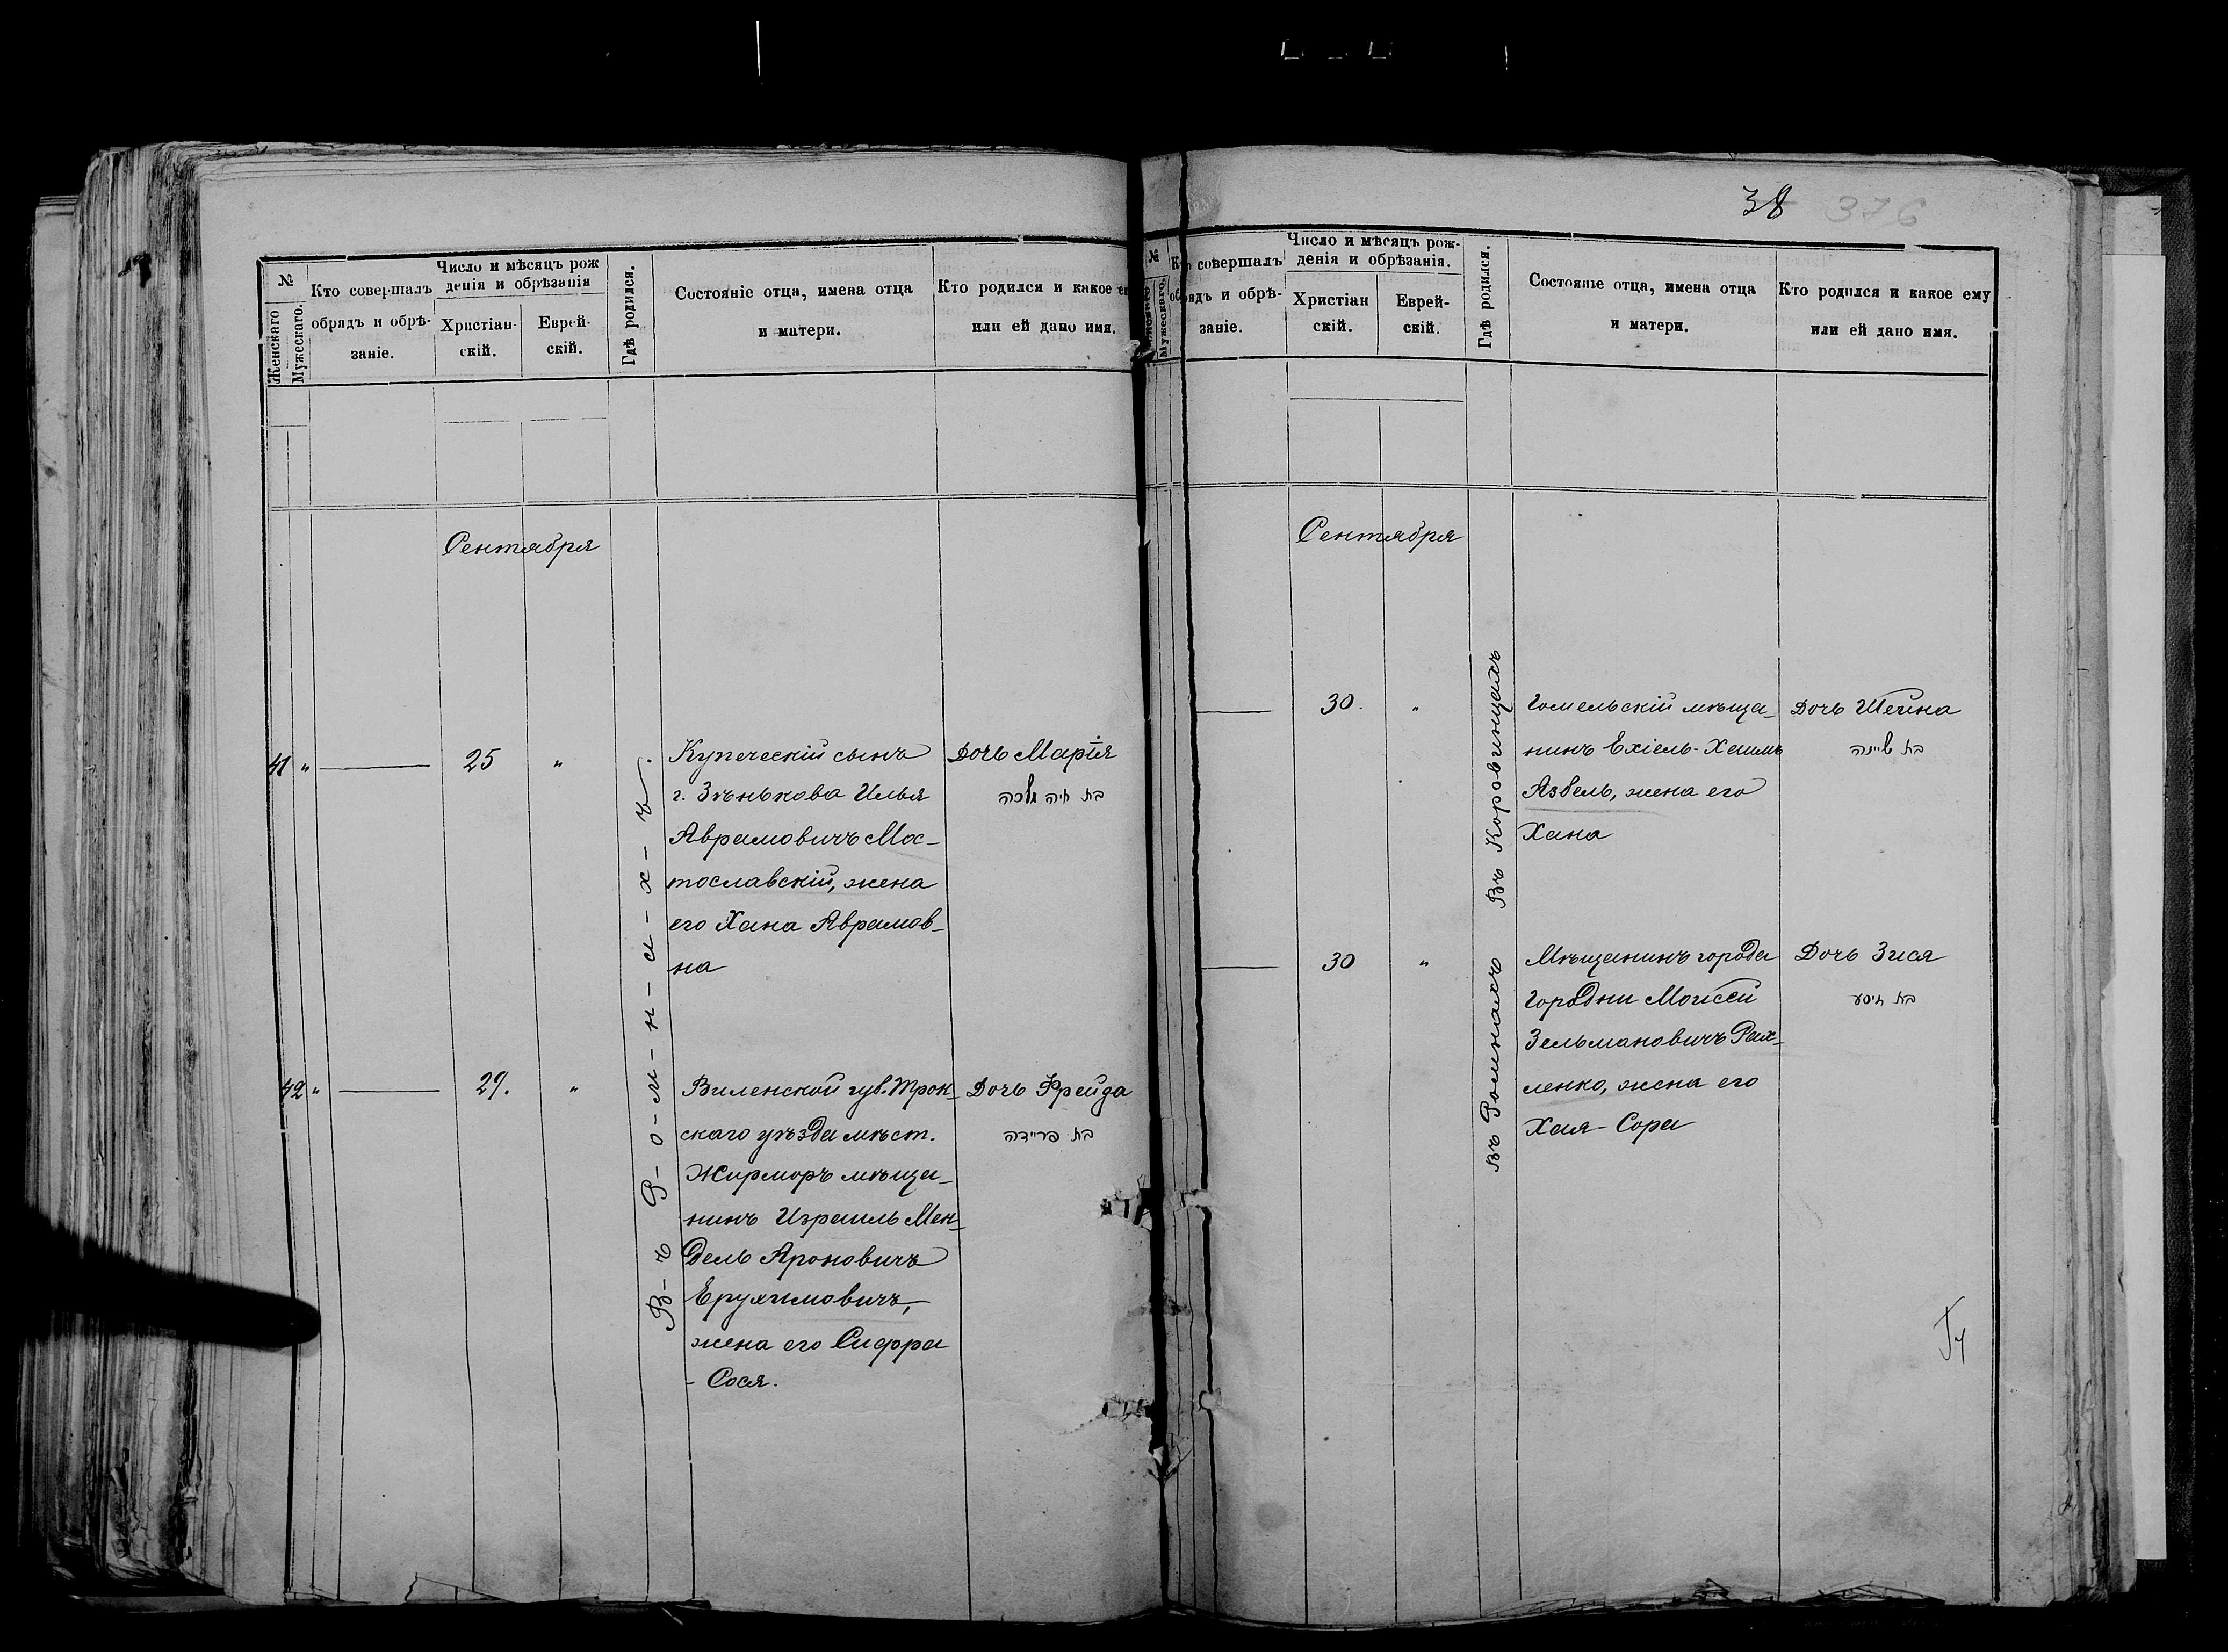 38 376
№
Женскаго
Мужескаго.
Кто совершалъ
обрядъ и обрѣ-
заніе.
Число и мѣсяцъ рож
денія и обрѣзанія
Христіан-
скій.
Еврей-
скій.
Гдѣ родился.
Состояніе отца, имена отца
и матери.
Кто родился и какое
или ей дано имя.
Сентября
41 " 25 "
В-ъ Р-о-м-н-а-х-ъ.
Купеческій сынъ
г. Зѣнькова Илья
Аврамовичъ Мос-
тославскій, жена
его Хана Аврамов-
на
Дочь Марія
בת חיה מלכה
42 " 29. "
Виленской губ. Трок-
скаго уѣзда мѣст.
Жирморъ мѣща-
нинъ Израиль Мен-
дель Ароновичъ
Ерухимовичъ,
жена его Сифра
- Сося.
Дочь Фрейда
בת פריידה
№
Мужескаго.
совершалъ
обрядъ и обрѣ-
заніе.
Число и мѣсяцъ рож-
денія и обрѣзанія.
Христіан
скій.
Еврей-
скій.
Гдѣ родился.
Состояніе отца, имена отца
и матери.
Кто родился и какое ему
или ей дано имя.
Сентября
30. "
Въ Коровинцахъ
Гомельскій мѣща-
нинъ Ехіель-Хаимъ
Азбель, жена его
Хана
Дочь Шейна
בת שיינה
30 "
Въ Ромнахъ
Мѣщанинъ города
Городни Моисей
Зельмановичъ Рах-
ленко, жена его
Хая-Сора
Дочь Зися
בת